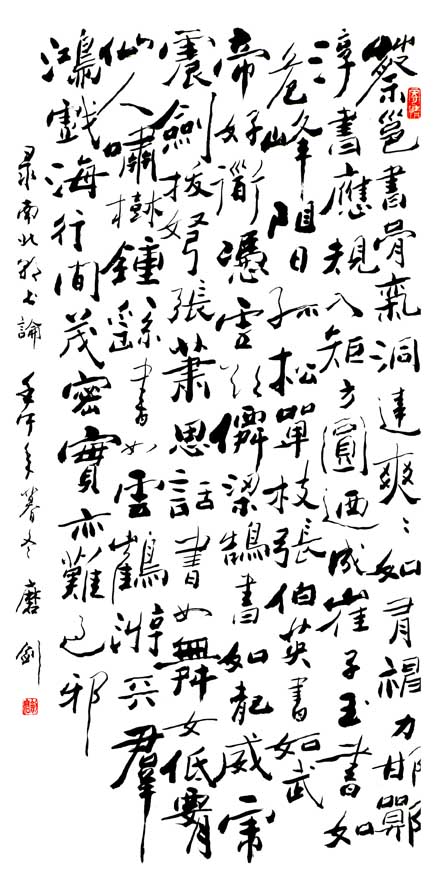 蔡邕書骨氣洞達爽〻如有神力邯鄲
淳書應規入矩方圓迺成崔子玉書如
危峰阻日孤松單枝張伯英書如武
帝好衟憑虛欲僊梁鵠書如龍威虎
震劍拔弩張蕭思話書如舞女低腰
仙人嘯樹鍾繇書如雲鶴游天羣
鴻戲海行間茂密實亦難過邪
录南北朝书論 壬午年暮冬 磨剑